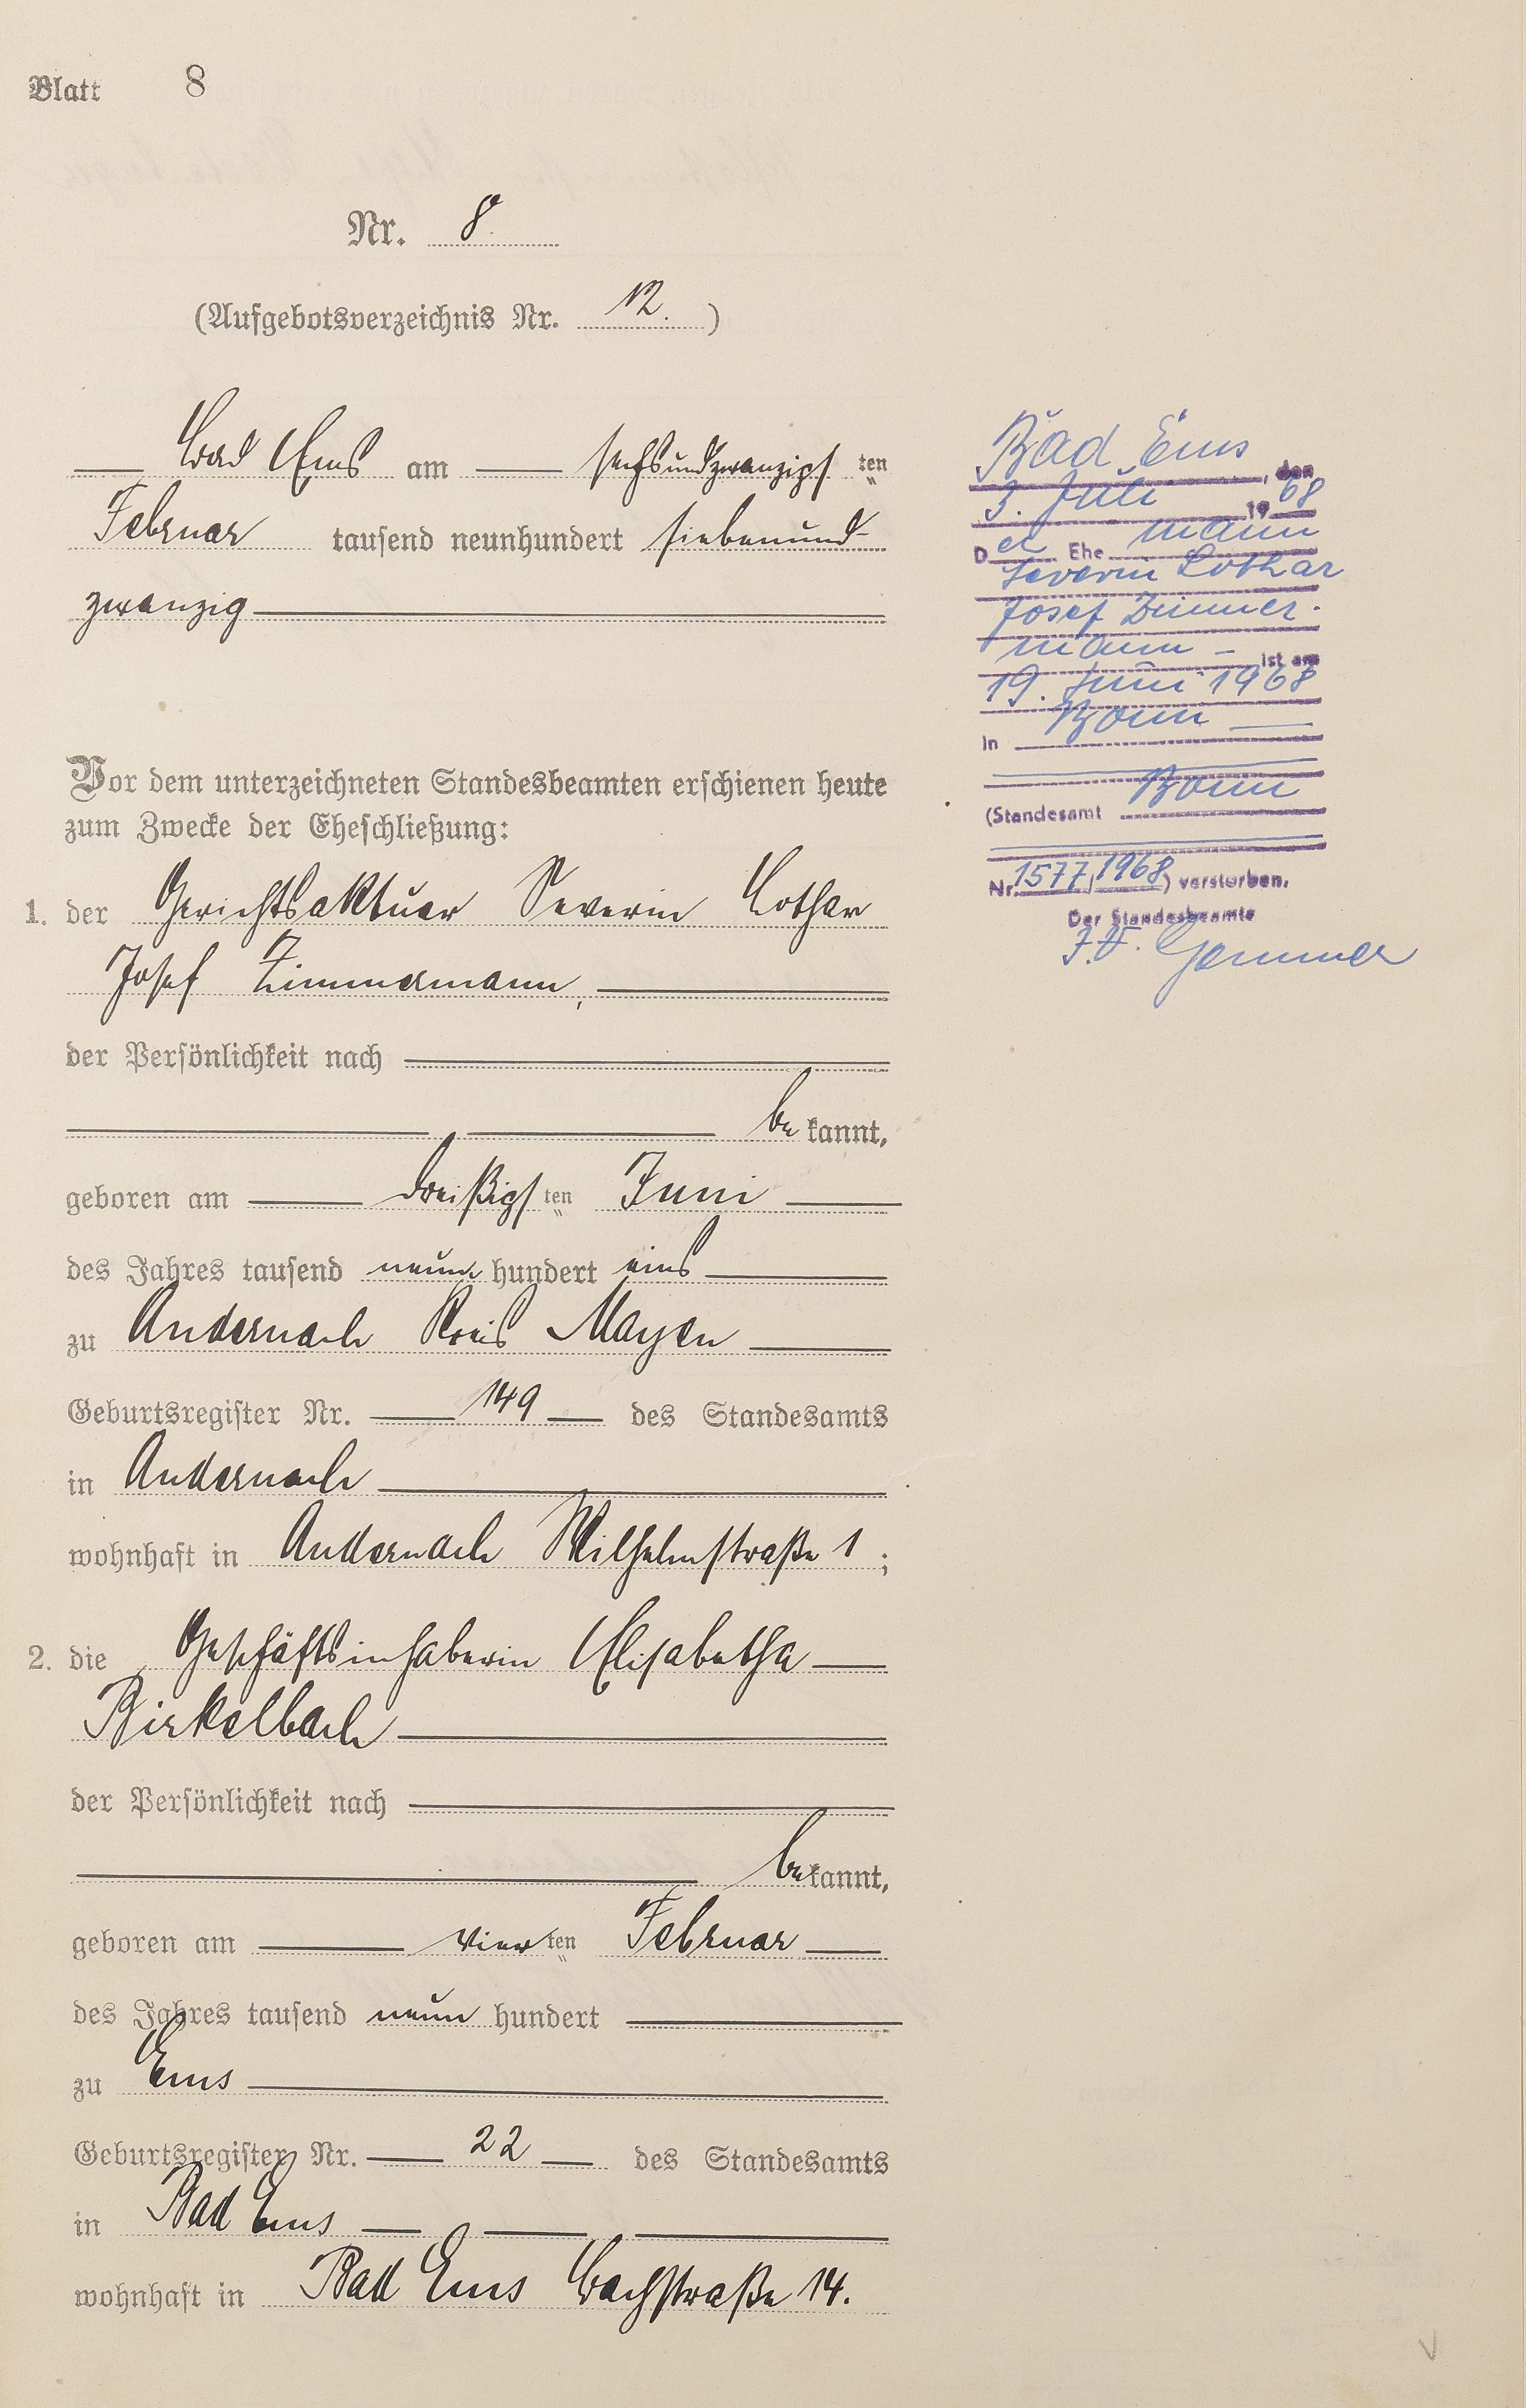 Blatt 8
Nr. 8.
(Aufgebotsverzeichnis Nr. 12.)
Bad Ems am sechsundzwanzigsten
Februar tausend neunhundert siebenund-
zwanzig
Vor dem unterzeichneten Standesbeamten erschienen heute
zum Zwecke der Eheschließung:
1. der Gerichtsaktuar Severin Lothar
Josef Zimmermann,
der Persönlichkeit nach
bekannt,
geboren am dreißigsten Juni
des Jahres tausend neun hundert eins
zu Andernach Kreis Mayen
Geburtsregister Nr. 149 des Standesamts
in Andernach
wohnhaft in Andernach Wilhelmstraße 1;
2. die Geschäftsinhaberin Elisabetha
Birkelbach
der Persönlichkeit nach
bekannt,
geboren am vierten Februar
des Jahres tausend neun hundert
zu Ems
Geburtsregister Nr. 22 des Standesamts
in Bad Ems
wohnhaft in Bad Ems Bachstraße 14.
Bad Ems, den
3. Juli 1968
Der Ehemann
Severin Lothar
Josef Zimmer-
mann - ist am
19. Juni 1968
in Bonn
(Standesamt Bonn
Nr. 1577/1968) verstorben.
Der Standesbeamte
J.V.